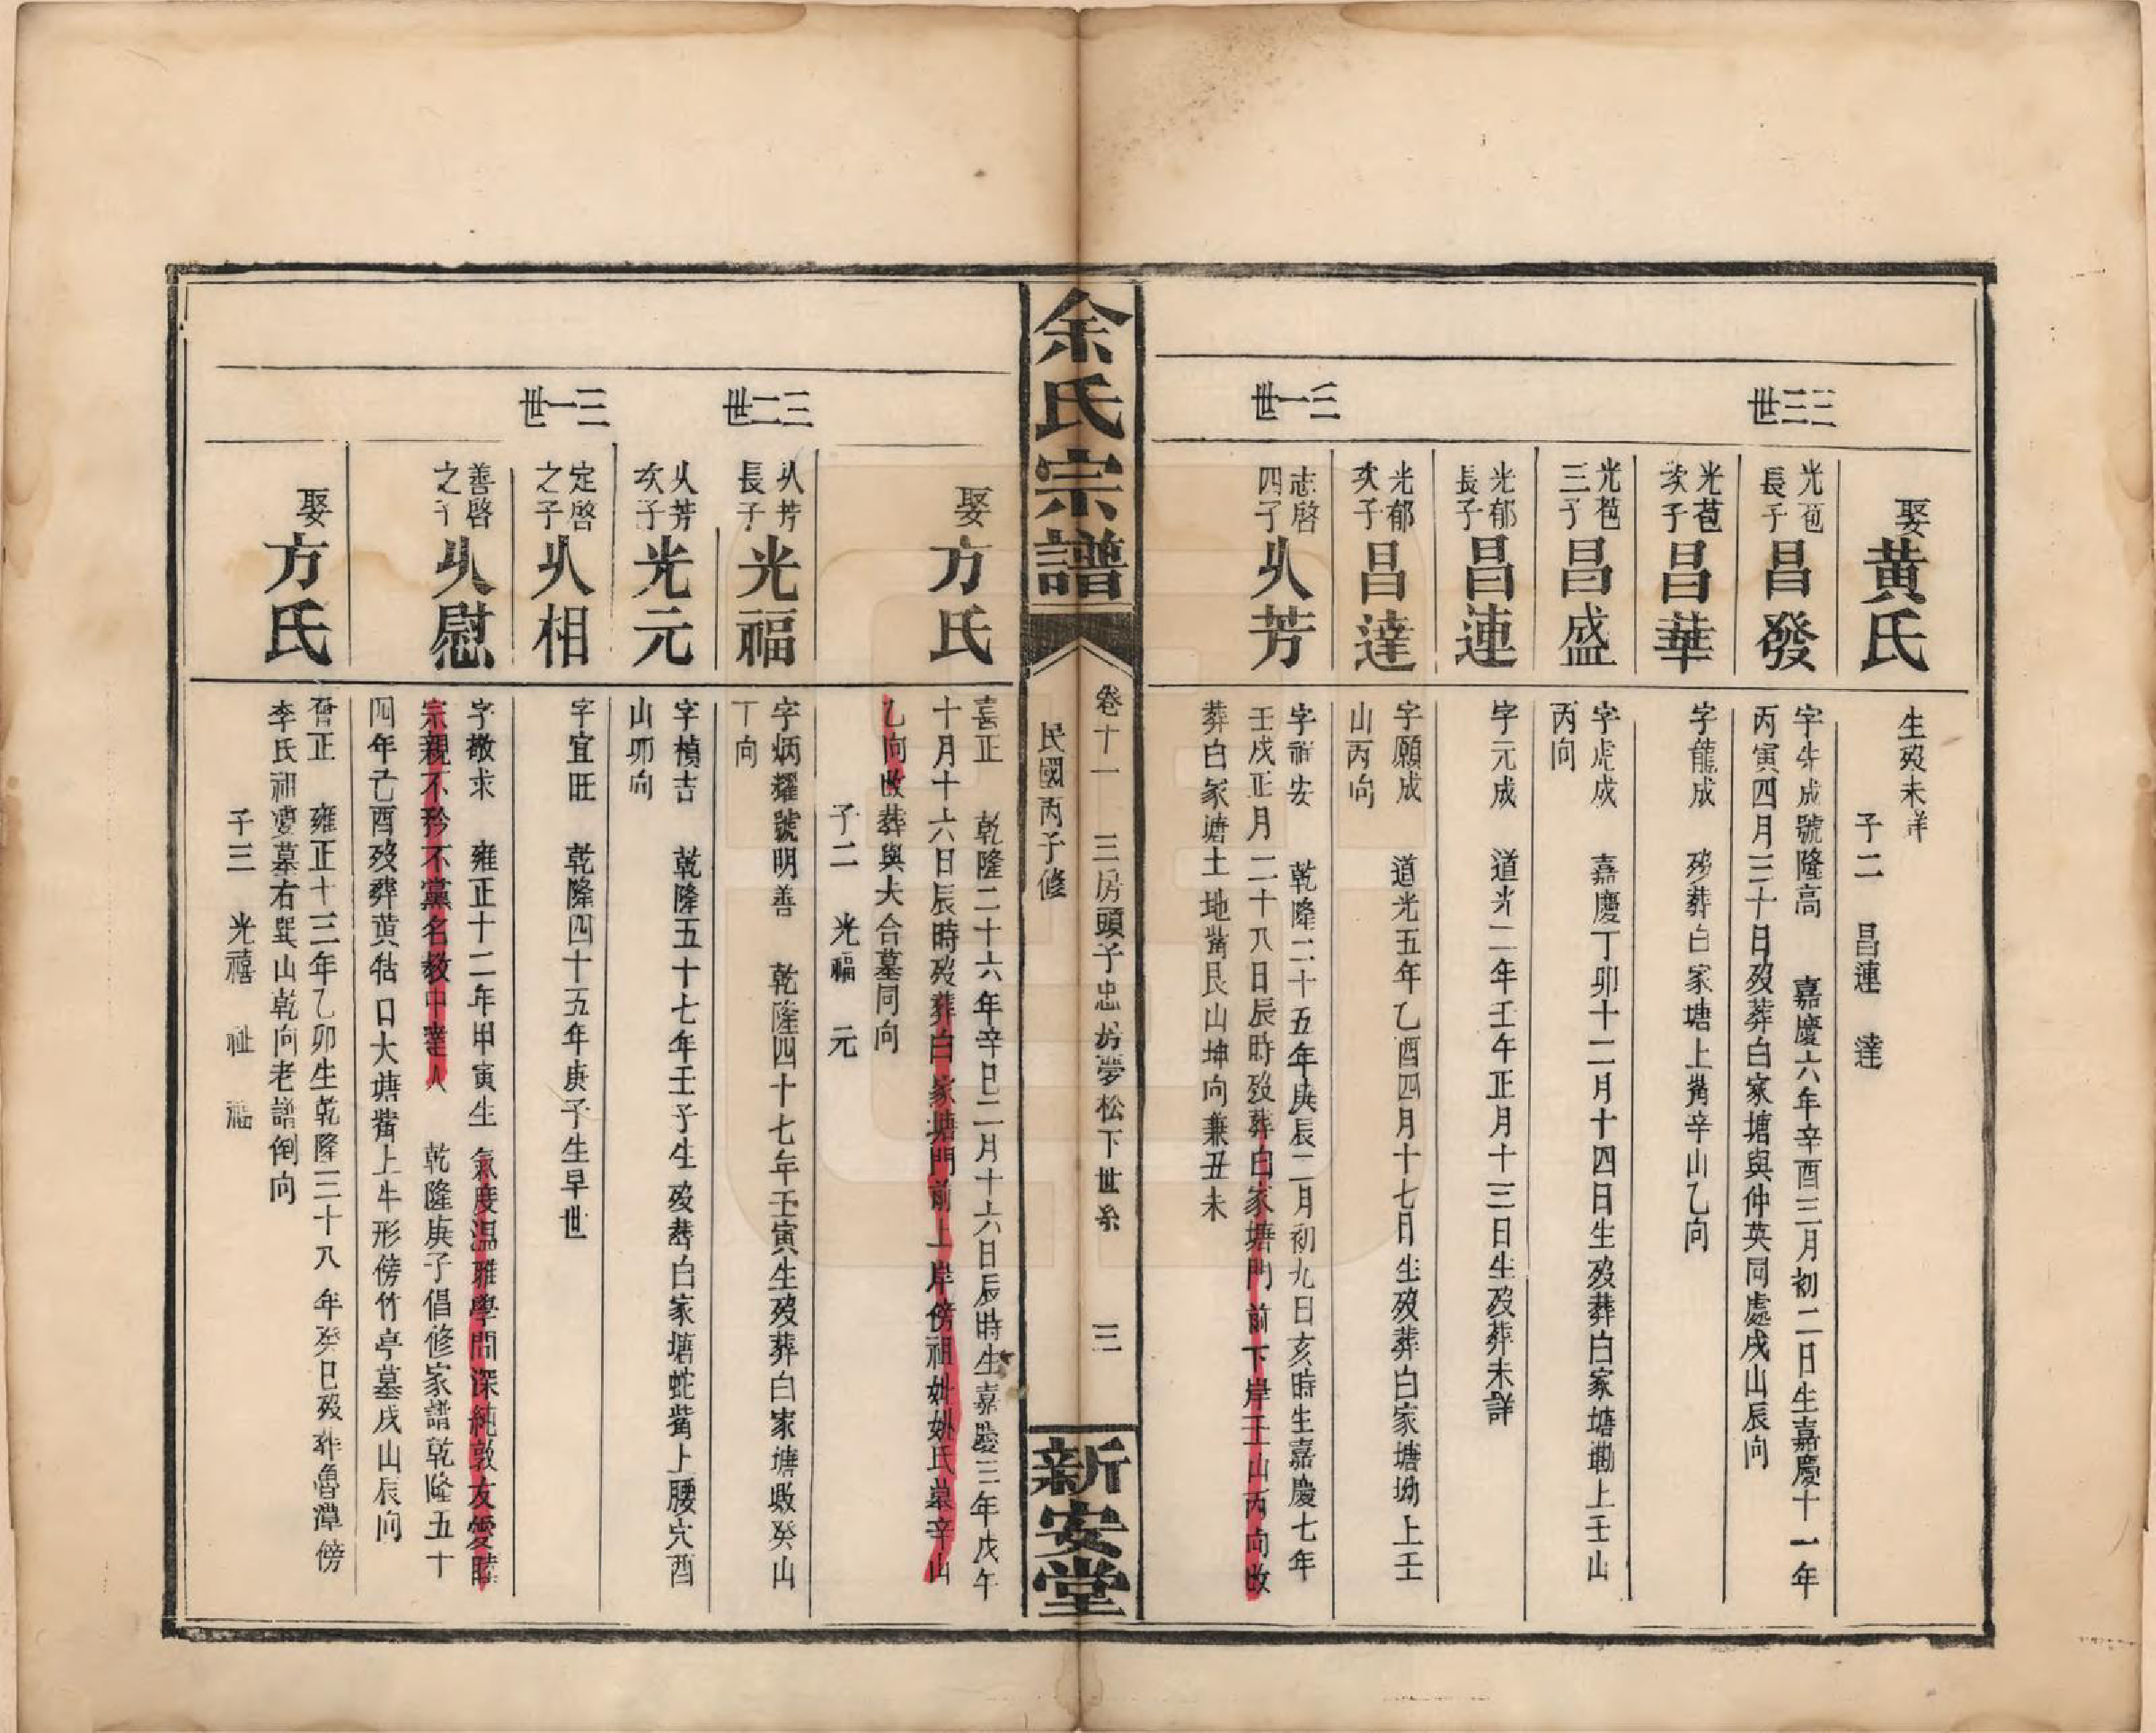 娶黃氏
生歿未詳
子二 昌連 達
三三世
光苞長子昌發
字生成號隆高 嘉慶六年辛酉三月初二日生嘉慶十一年
丙寅四月三十日歿葬白家塘與仲英同處戌山辰向
光苞次子昌華
字龍成 歿葬白家塘上嘴辛山乙向
光苞三子昌盛
字虎成 嘉慶丁卯十二月十四日生歿葬白家塘墈上壬山
丙向
光郁長子昌連
字元成 道光二年壬午正月十三日生歿葬未詳
光郁次子昌達
字願成 道光五年乙酉四月十七日生歿葬白家塘坳上壬
山丙向
三一世
志啓四子从芳
字祥安 乾隆二十五年庚辰二月初九日亥時生嘉慶七年
壬戌正月二十八日辰時歿葬白家塘門前下岸壬山丙向改
葬白家塘土地嘴艮山坤向兼丑未
余氏宗譜
卷十一 三房頭子忠房夢松下世系 三
民國丙子修
新安堂
娶方氏
喜正 乾隆二十六年辛巳二月十六日辰時生嘉慶三年戊午
十月十六日辰時歿葬白家塘門前上岸傍祖妣姚氏墓辛山
乙向改葬與夫合墓同向
子二 光福 元
三二世
从芳長子光福
字炳耀號明善 乾隆四十七年壬寅生歿葬白家塘墩癸山
丁向
从芳次子光元
字楨吉 乾隆五十七年壬子生歿葬白家塘蛇嘴上腰穴酉
山卯向
三一世
定啓之子从相
字宜旺 乾隆四十五年庚子生早世
善啓之子从慰
字敬求 雍正十二年甲寅生 氣度温雅學問深純敦友愛睦
宗親不矜不黨名教中達人 乾隆庚子倡修家譜乾隆五十
四年己酉歿葬黄牯口大塘嘴上牛形傍竹亭墓戌山辰向
娶方氏
啓正 雍正十三年乙卯生乾隆三十八年癸巳歿葬魯潭傍
李氏祖婆墓右巽山乾向老譜倒向
子三 光禧 祉 福